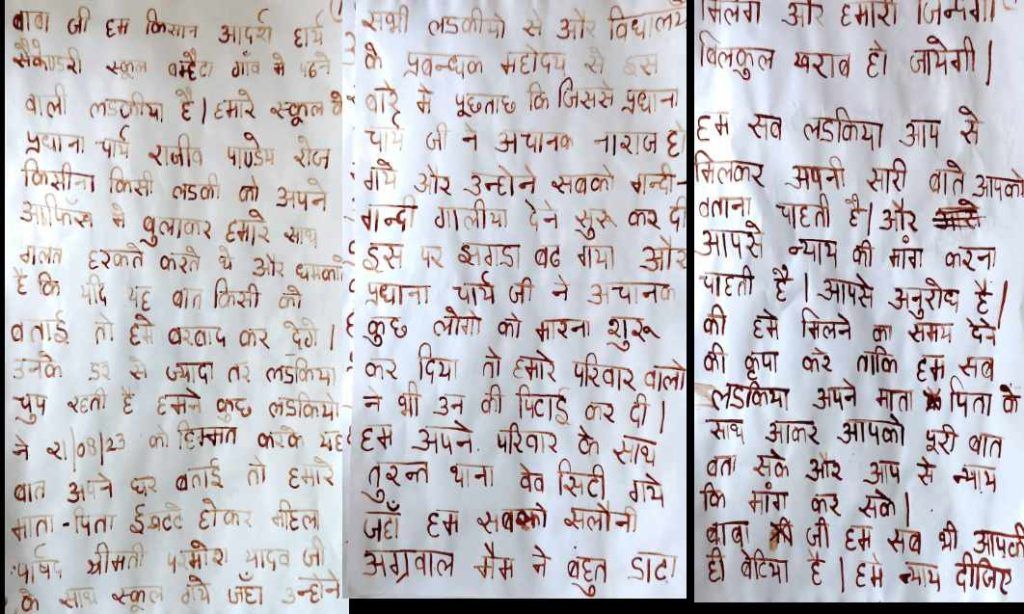 बाबा जी हम किसान आदर्श हार्य
सैकेण्डरी स्कूल बम्हैटा गाँव मे पढने
वाली लडकीया है। हमारे स्कूल के
प्रधाना चार्य राजीव पाण्डेय रोज
किसीना किसी लडकी को अपने
आफिस मे बुलाकर हमारे साथ
गलत हरकते करते थे और धमकाते
है कि यदि यह बात किसी को
बताई तो हमे बरबाद कर देगे।
उनके डर से ज्यादा तर लडकिया
चुप रहती है हमने कुछ लडकियो
ने 21/08/23 को हिम्मत करके यह
बात अपने घर बताई तो हमारे
माता-पिता ईकटटे होकर महिला
पार्षद श्रीमती परमोश यादव जी
के साथ स्कूल गये जहाँ उन्होने
सभी लडकीयो से और विधालय
के प्रबन्धक महोदय से इस
बारे मे पूछताछ कि जिससे प्रधाना
चार्य जी ने अचानक नाराज हो
गये और उन्होने सबको गन्दी-
गन्दी गालीया देने सुरू कर दी
इस पर झगडा बढ गया और
प्रधाना चार्य जी ने अचानक
कुछ लोगो को मारना शुरू
कर दिया तो हमारे परिवार वालो
ने भी उन की पिटाई कर दी।
हम अपने परिवार के साथ
तुरन्त थाना वेव सिटी गये
जहाँ हम सबको सलोनी
अग्रवाल मैम ने बहुत डाटा
मिलेगा और हमारी जिन्दगी
बिलकुल खराब हो जायेगी।
हम सब लडकिया आप से
मिलकर अपनी सारी बाते आपको
बताना चाहती है। और
आपसे न्याय की मांग करना
चाहती है। आपसे अनुरोध है।
की हमे मिलने का समय देने
की कृपा करे ताकि हम सब
लडकिया अपने माता पिता के
साथ आकर आपको पूरी बात
बता सके और आप से न्याय
कि मांग कर सके।
बाबा जी हम सब भी आपकी
ही बेटिया है। हमे न्याय दीजिए